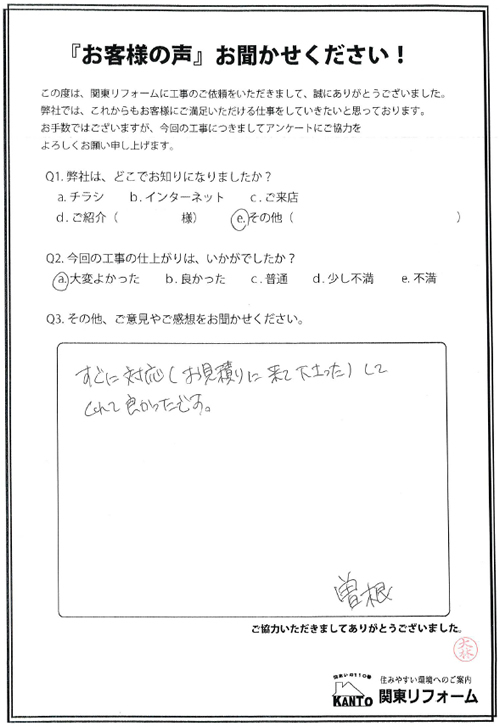 『お客様の声』お聞かせください！
この度は、関東リフォームに工事のご依頼をいただきまして、誠にありがとうございました。
弊社では、これからもお客様にご満足いただける仕事をしていきたいと思っております。
お手数ではございますが、今回の工事につきましてアンケートにご協力を
よろしくお願い申し上げます。
Q1. 弊社は、どこでお知りになりましたか？
a. チラシ b. インターネット c. ご来店
d. ご紹介（ 様） e. その他（ ）
Q2. 今回の工事の仕上がりは、いかがでしたか？
a. 大変よかった b. 良かった c. 普通 d. 少し不満 e. 不満
Q3. その他、ご意見やご感想をお聞かせください。
すぐに対応（お見積りに来て下さった）して
くれて良かったです。
曽根
ご協力いただきましてありがとうございました。
住みやすい環境へのご案内
KANTO 関東リフォーム